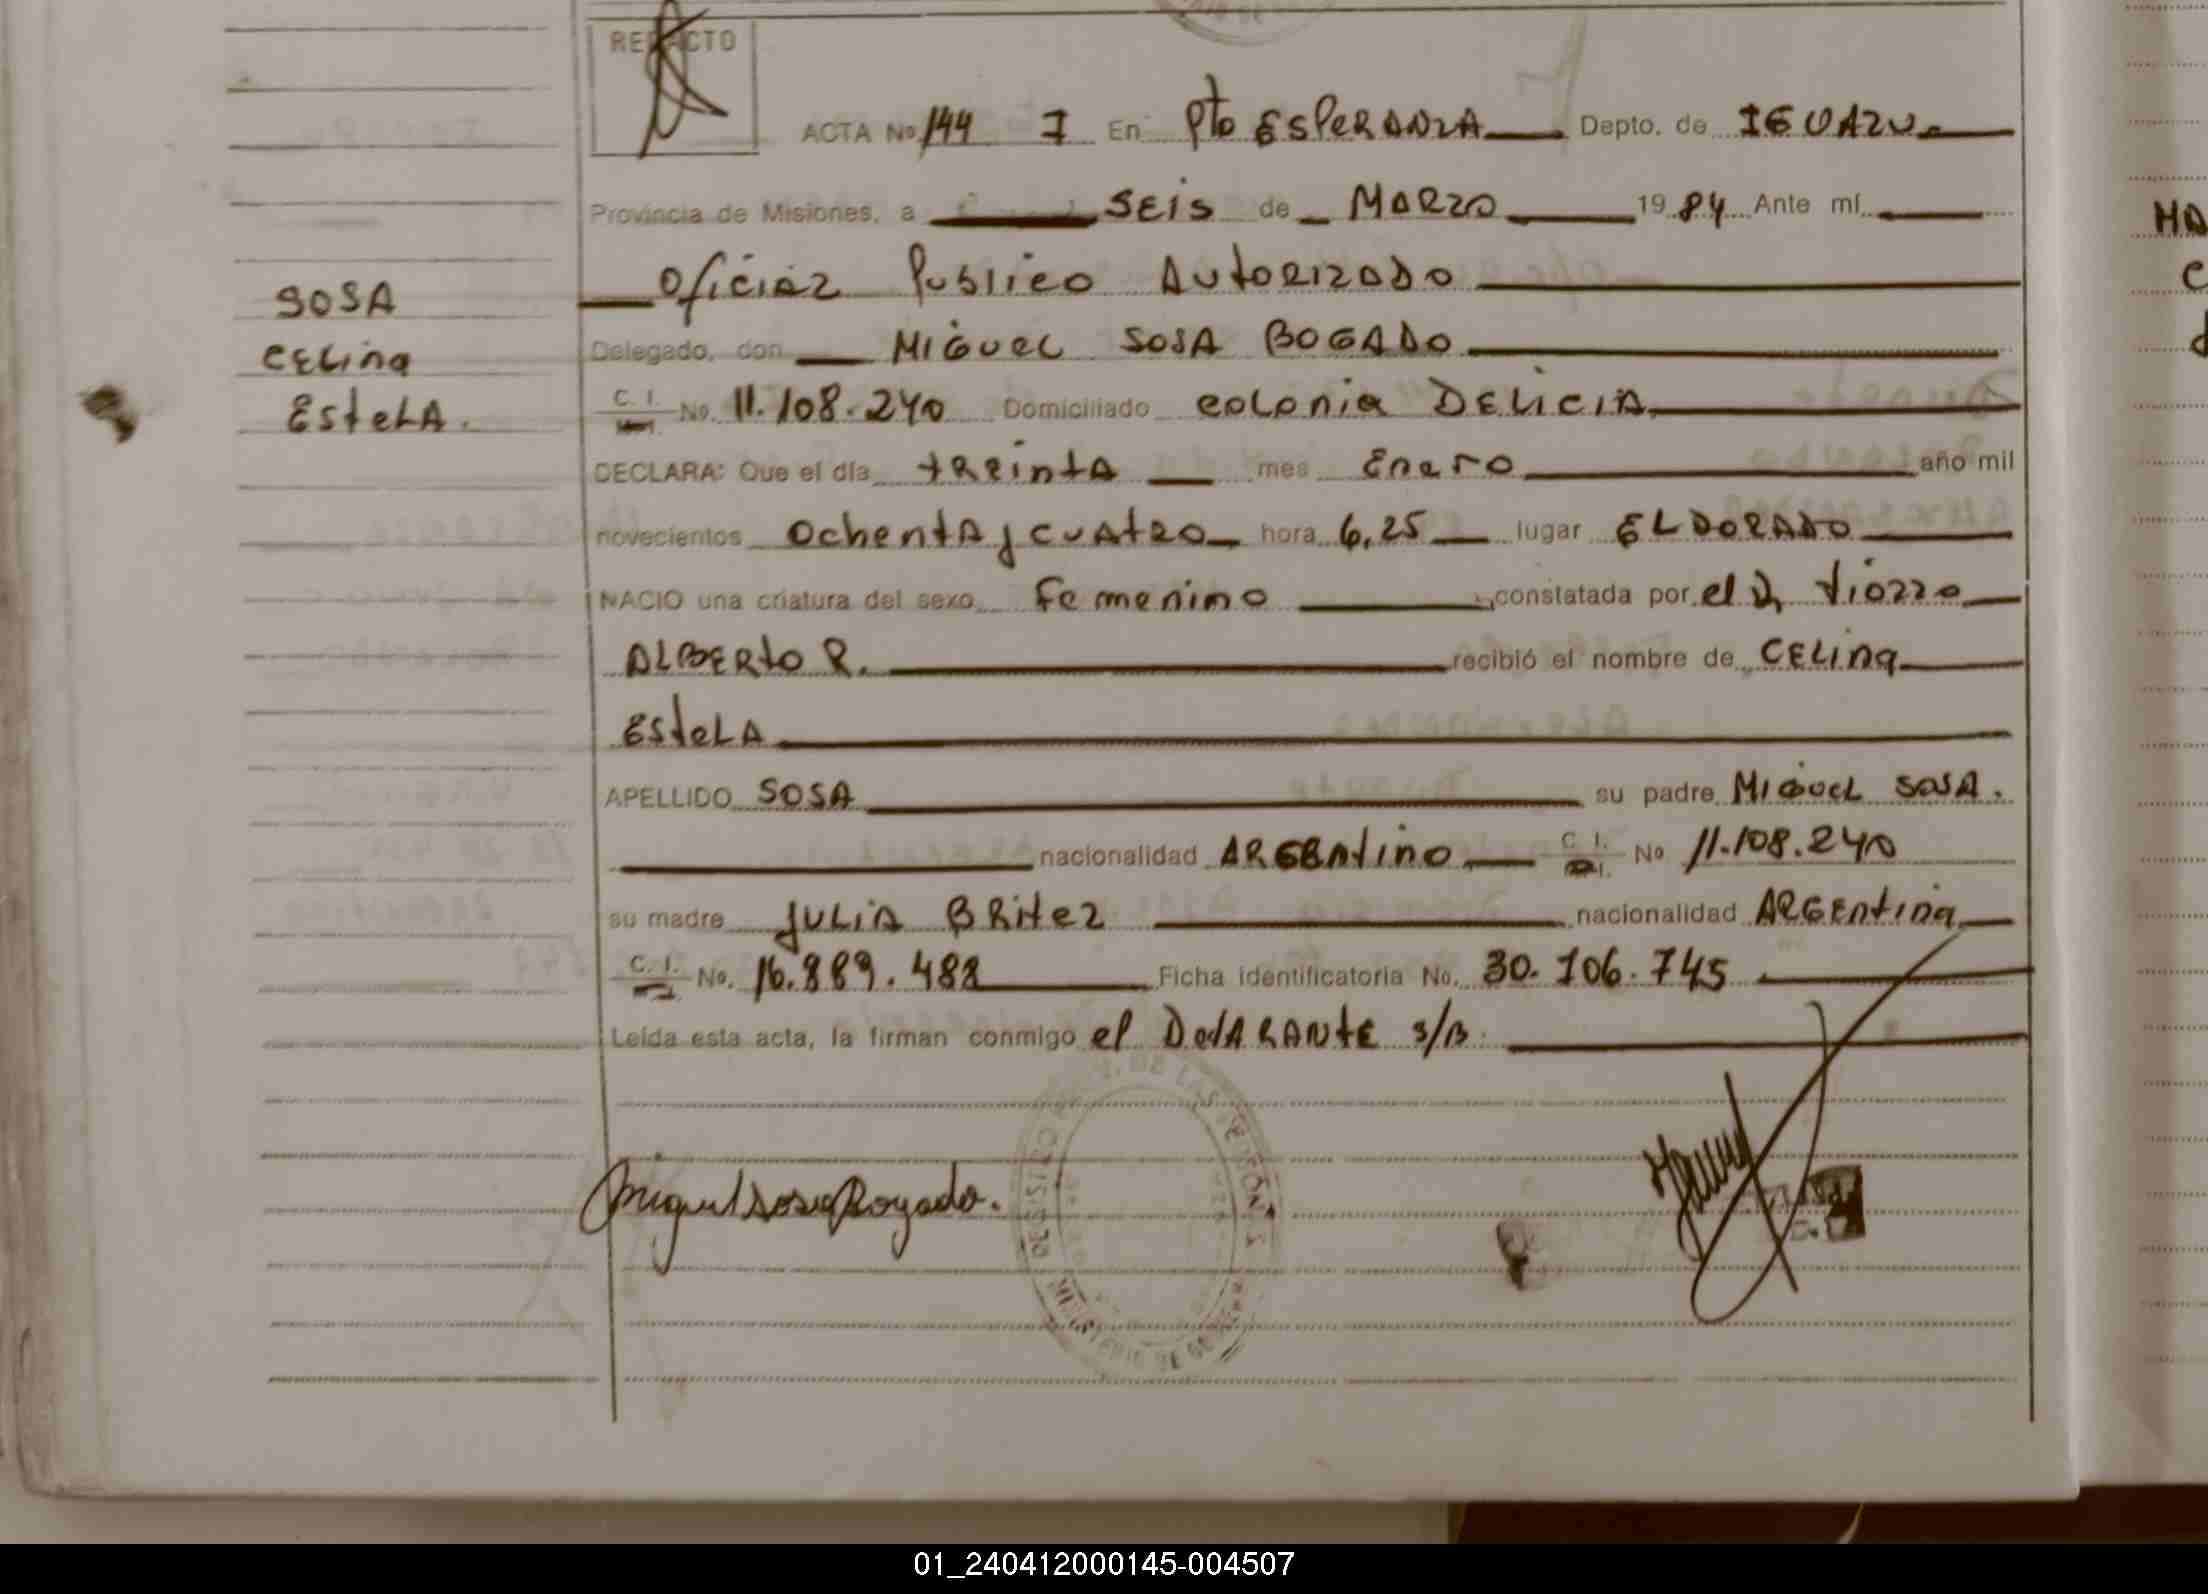 REDACTO
ACTA No 144 I En Pto ESPERANZA Depto. de IGUAZU
Provincia de Misiones, a SEIS de MARZO 1984 Ante mí
Oficial Publico AutoRIZADO
Delegado, don MIGUEL SOSA BOGADO
C. I. No. 11.108.240 Domiciliado COLONIA DELICIA
DECLARA: Que el día tREINTA mes ENERO año mil
novecientos OchentA y CUAtRO hora 6,25 lugar ELDORADO
NACIO una criatura del sexo Femenino constatada por el Dr tiozzo
ALBERto R. recibió el nombre de CELina
EsteLA
APELLIDO SOSA su padre MIGUEL SOSA.
nacionalidad ARGENtino C. I. No 11.108.240
su madre JULIA BRItez nacionalidad ARGEntina
C. I. No. 16.889.488 Ficha identificatoria No. 30.106.745
Leída esta acta, la firman conmigo el DeclARANtE
SOSA
CELina
EsteLA.
Miguel Sosa Bogado.
MINISTERIO DE
01_240412000145-004507